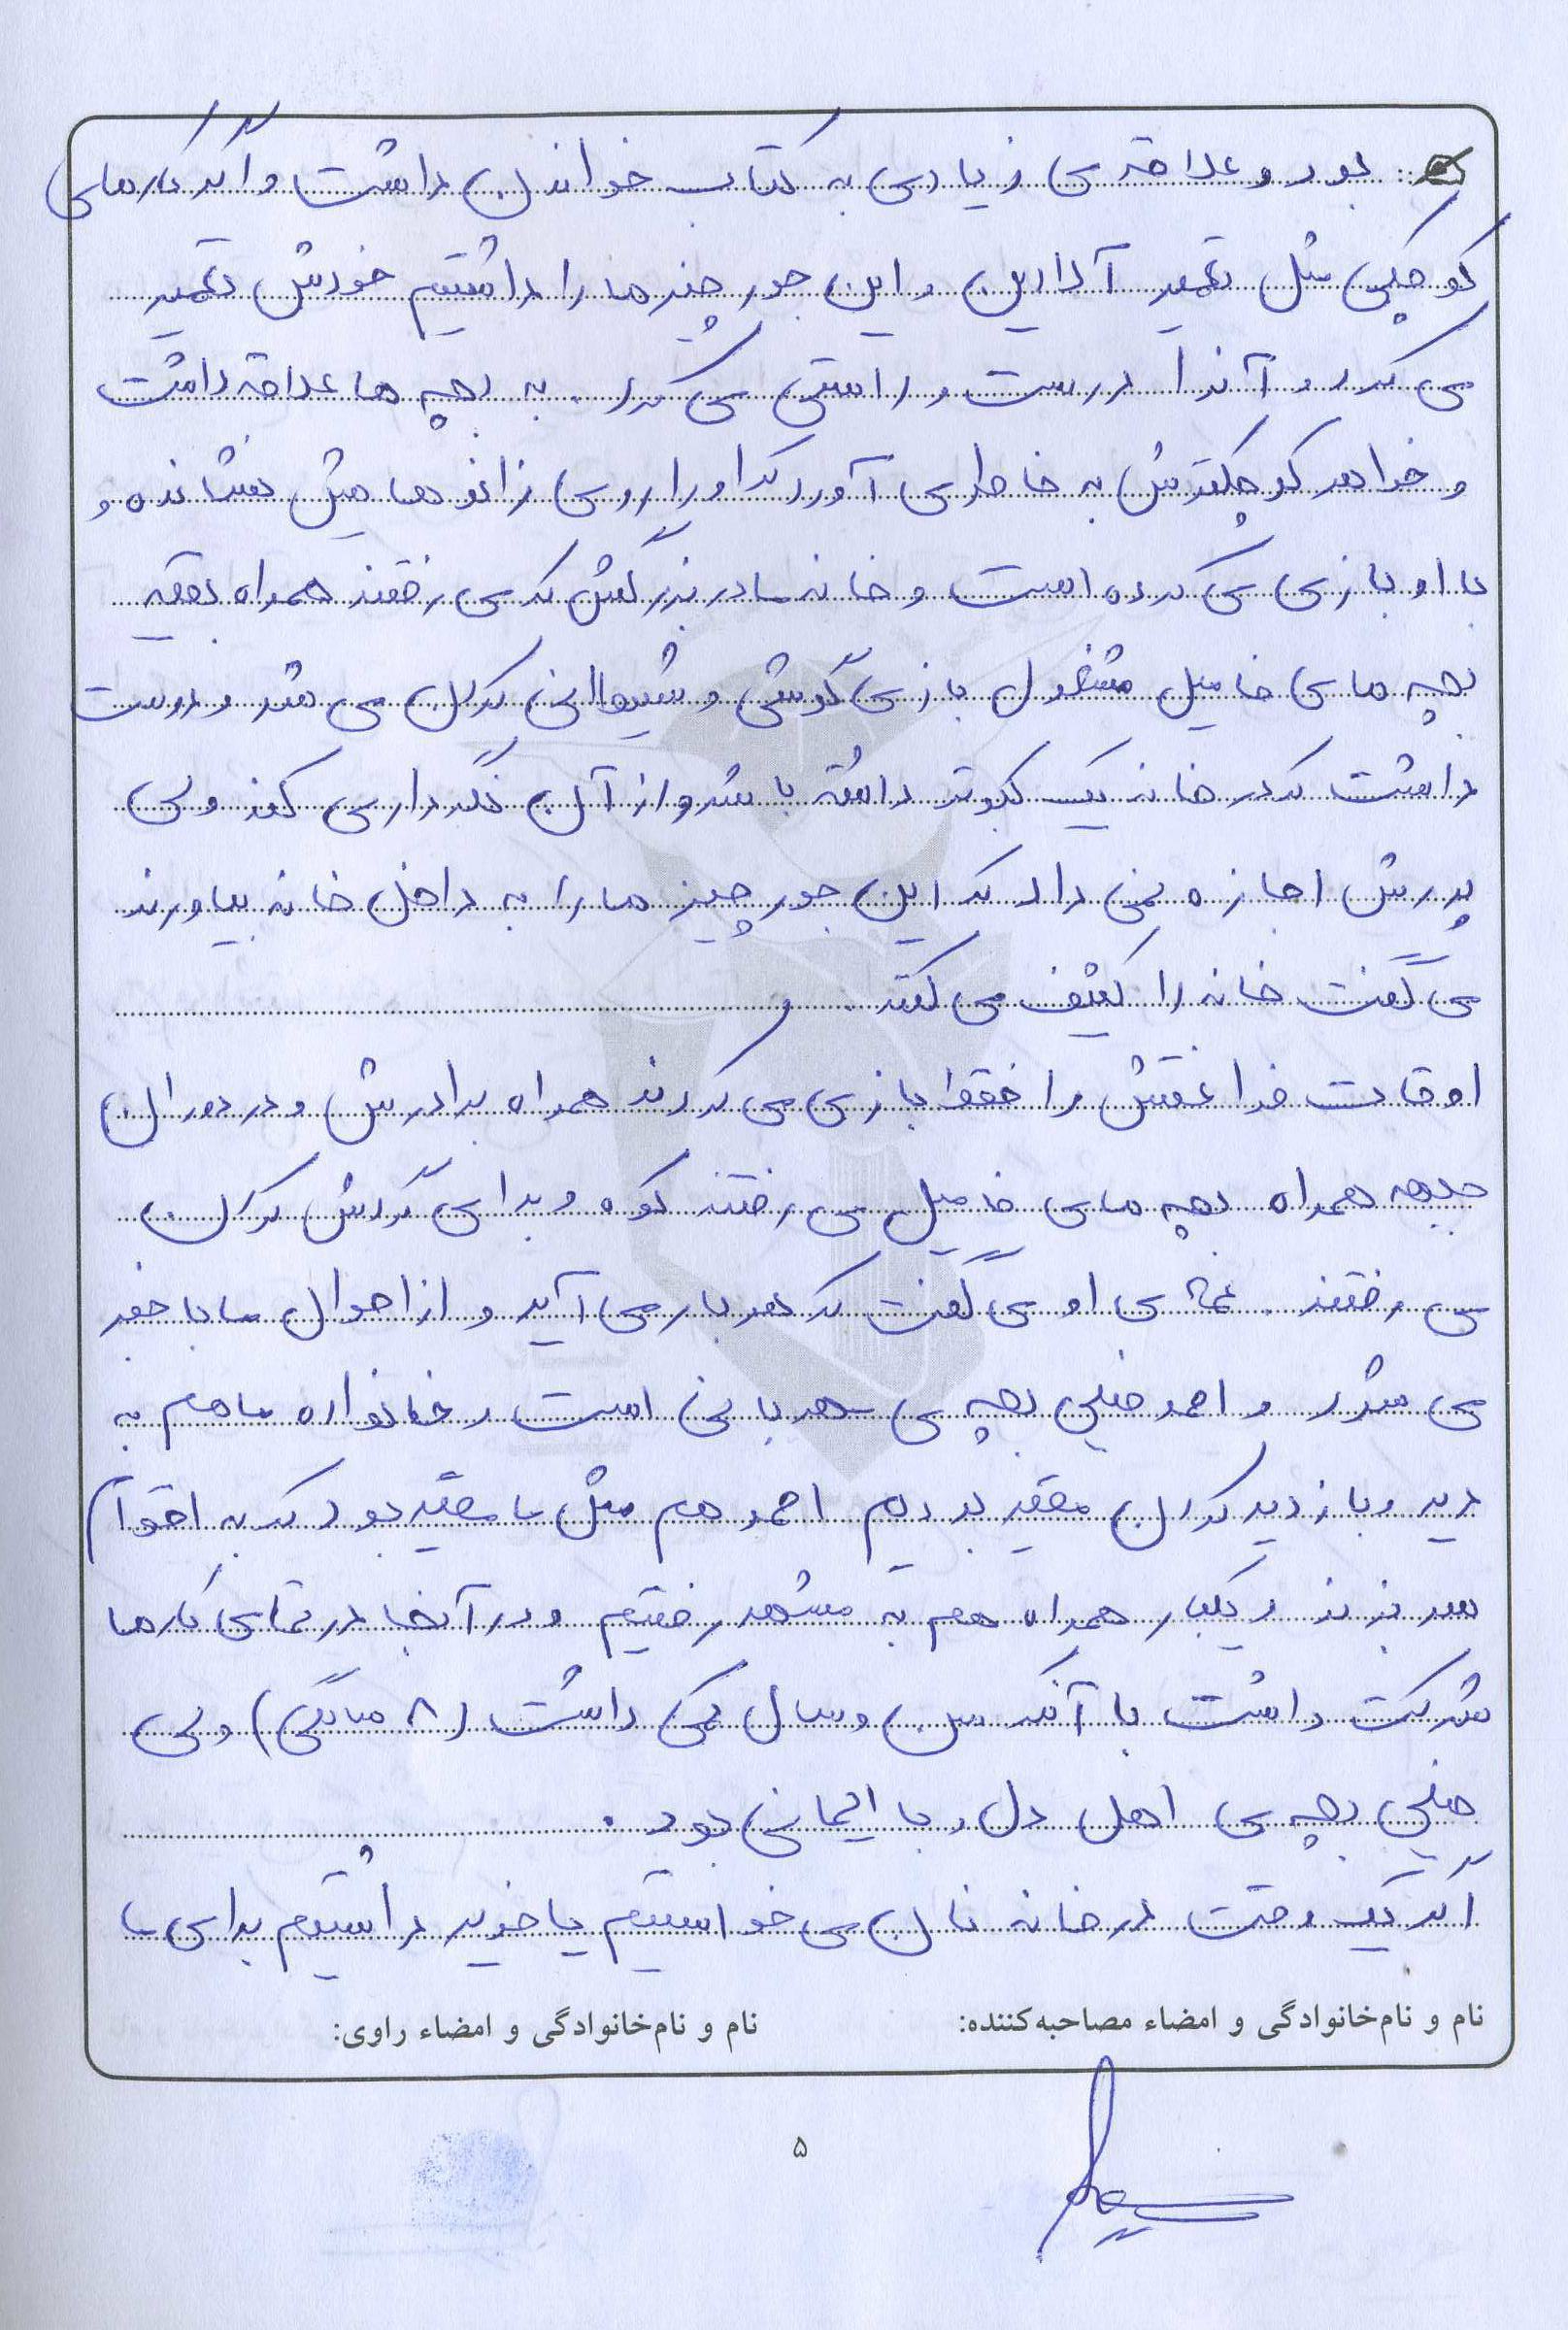 بود و علاقه ی زیادی به کتاب خواندن داشت و اگر کارهای
کوچکی مثل تعمیر آنتن و این جور چیزها را داشتیم خودش تعمیر
می کرد و آنرا درست و راستی می کرد. به بچه ها علاقه داشت
و خواهر کوچکترش به خاطر می آورد که او را روی زانو هایش نشانده و
با او بازی می کرده است و خانه مادر بزرگش که می رفتند همراه بقیه
بچه های فامیل مشغول بازی گوشی و شیطانی کردن می شد و دوست
داشت که در خانه یک کبوتر داشته باشد و از آن نگهداری کند ولی
پدرش اجازه نمی داد که این جور چیز ها را به داخل خانه بیاورند
می گفت خانه را کثیف می کنند. و
اوقات فراغتش را فقط بازی می کردند همراه برادرش و در دوران
جبهه همراه بچه های فامیل می رفتند کوه و برای گردش کردن
می رفتند. عمه ی او می گفت که هر بار می آید و از احوال ما با خبر
می شود و احمد خیلی بچه ی مهربانی است و خانواده ما هم به
دید و بازدید کردن مقید بودیم احمد هم مثل ما مقید بود که به اقوام
سر بزند و یکبار همراه هم به مشهد رفتیم و در آنجا در تمامی کارها
شرکت داشت با آنکه سن و سال کمی داشت (۸ سالگی) ولی
خیلی بچه ی اهل دل و با ایمانی بود.
اگر یک وقت در خانه نان می خواستیم یا خرید داشتیم برای ما
نام و نام‌خانوادگی و امضاء مصاحبه‌کننده: نام و نام‌خانوادگی و امضاء راوی:
۵